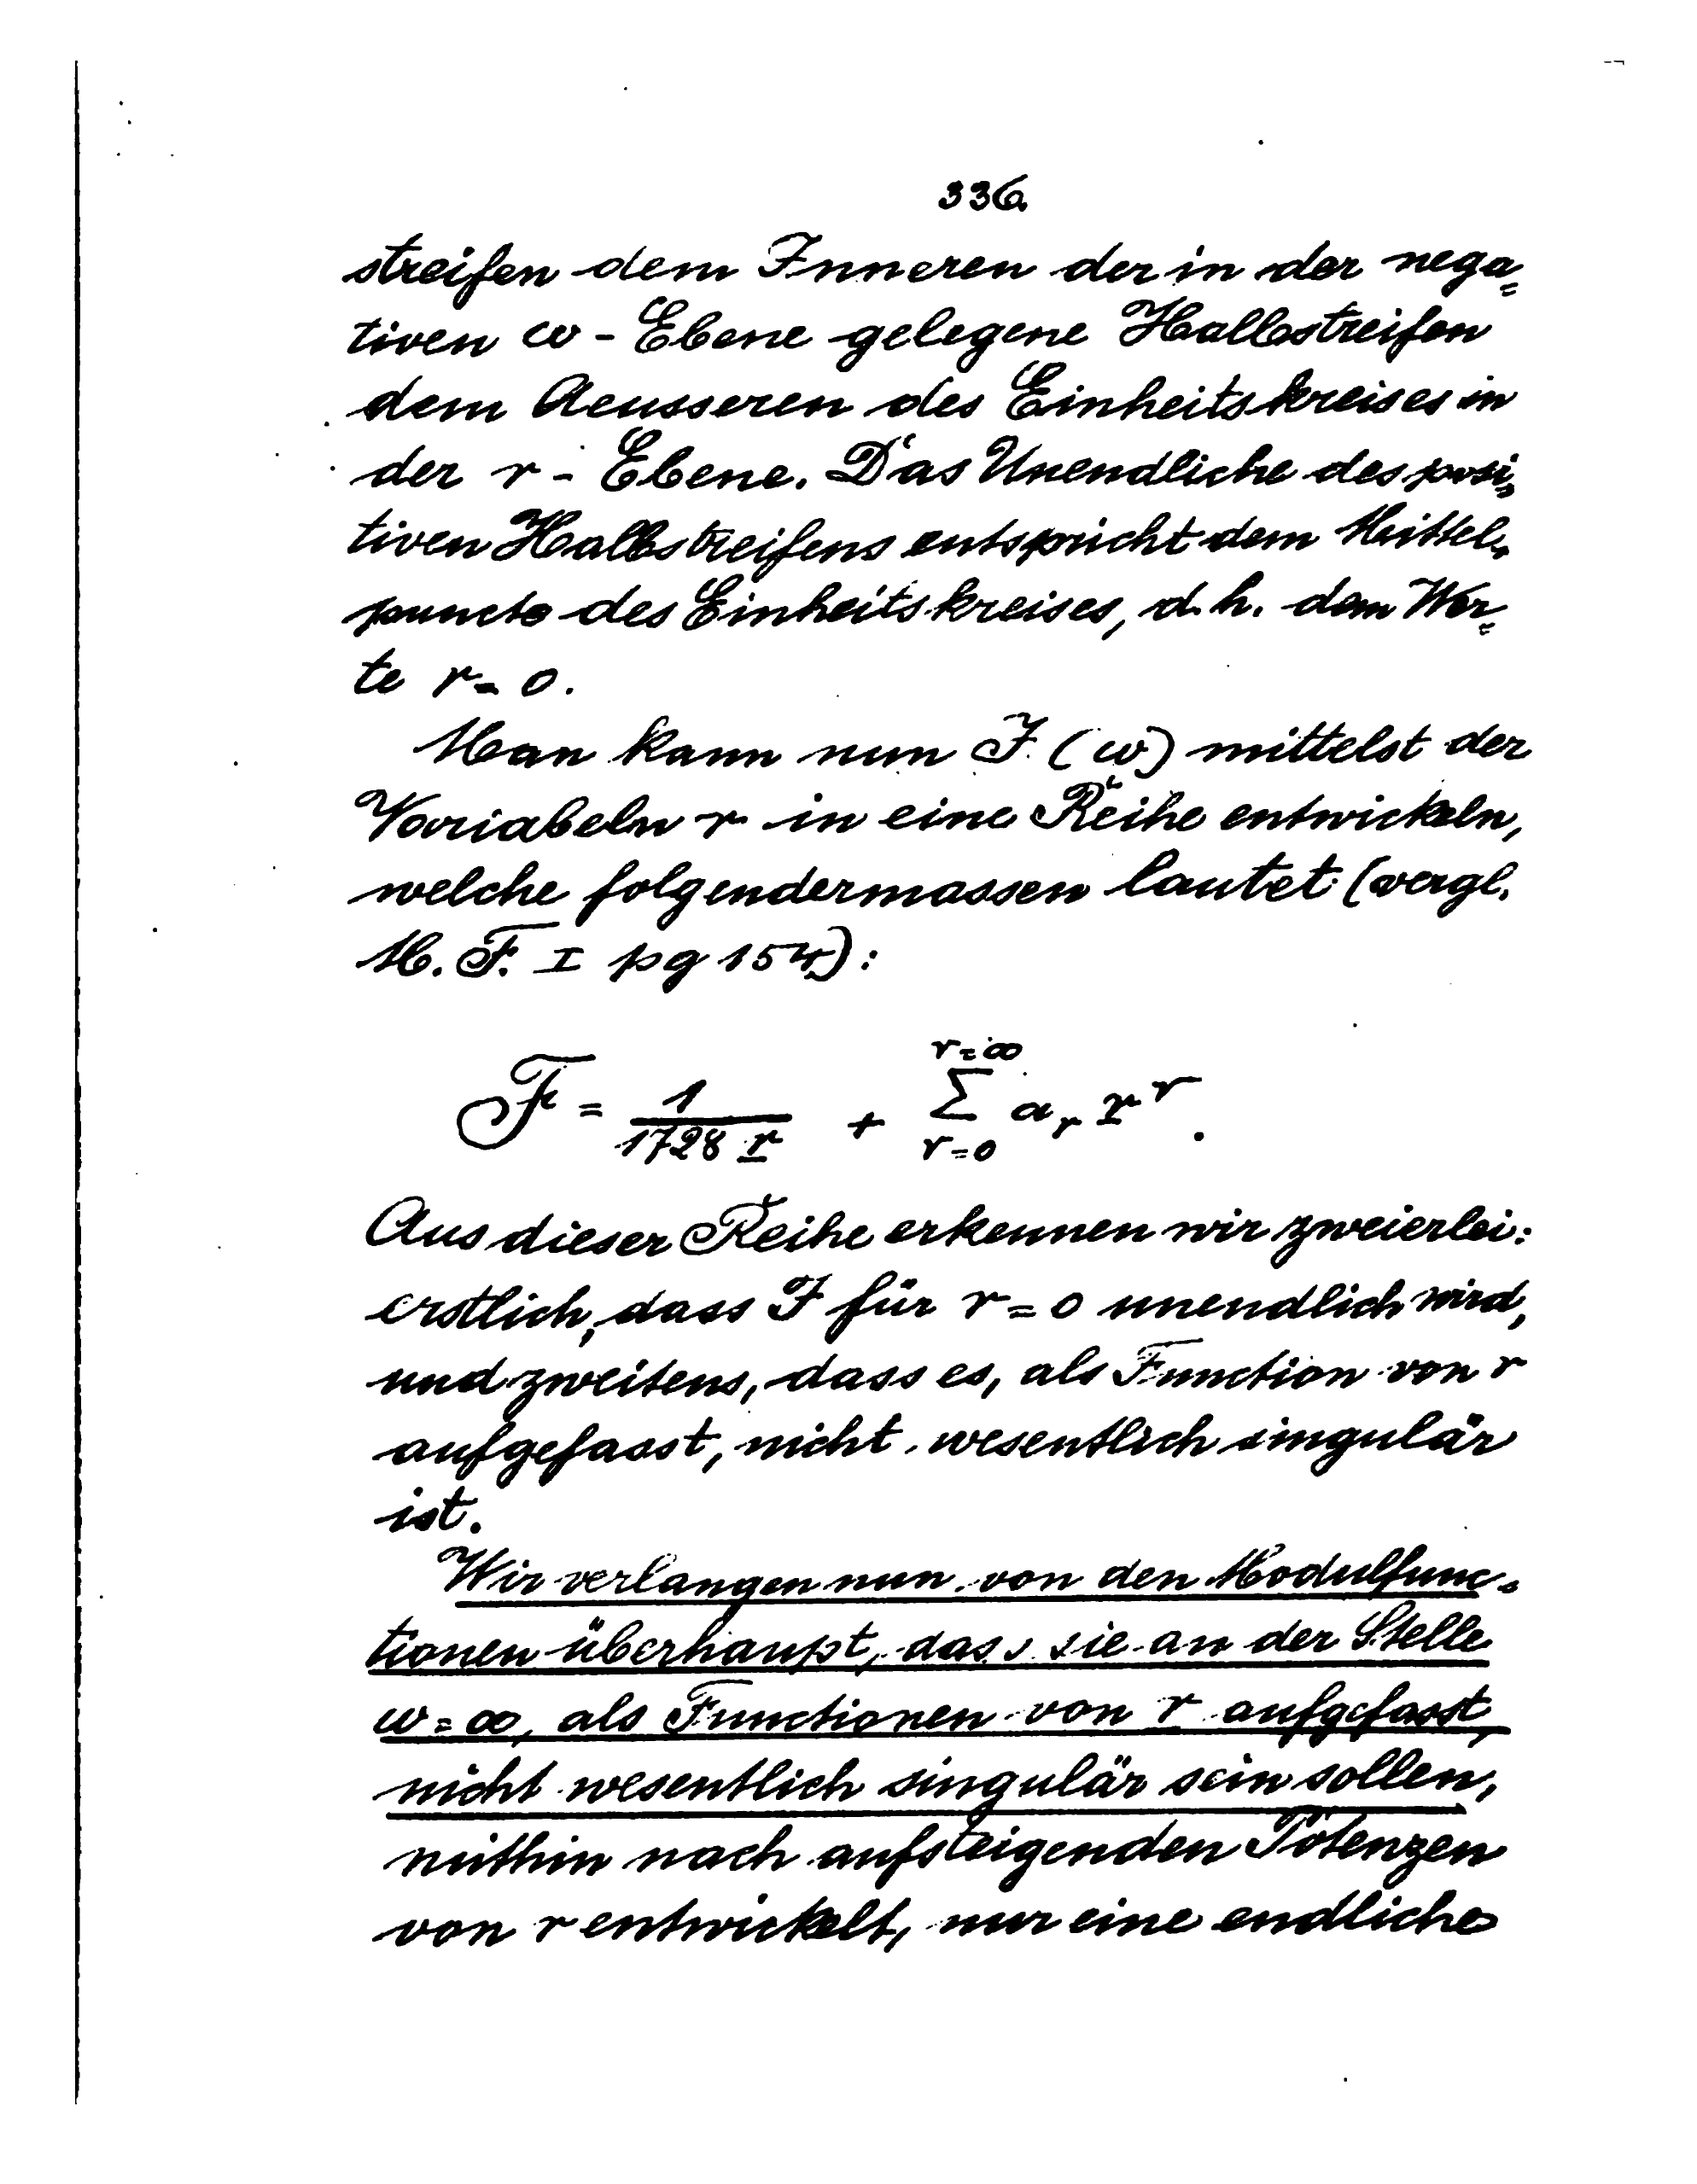 336.
streifen dem Inneren der in der nega=
tiven ω - Ebene gelegene Halbstreifen
dem Aeusseren des Einheitskreises in
der r - Ebene. Das Unendliche des posi=
tiven Halbstreifens entspricht dem Mittel=
puncte des Einheitskreises, d.h. dem Wer=
te r = 0.
Man kann nun J (ω) mittelst der
Variabeln r in eine Reihe entwickeln,
welche folgendermassen lautet (vergl.
M. F. I pg 154):
J = 1/(1728 r) + Σ_{r=0}^{r=∞} a_r r^r.
Aus dieser Reihe erkennen wir zweierlei:
erstlich, dass J für r = 0 unendlich wird,
und zweitens, dass es, als Function von r
aufgefasst, nicht wesentlich singulär
ist.
Wir verlangen nun von den Modulfunc=
tionen überhaupt, dass sie an der Stelle
ω = ∞, als Functionen von r aufgefasst,
nicht wesentlich singulär sein sollen,
mithin nach aufsteigenden Potenzen
von r entwickelt, nur eine endliche